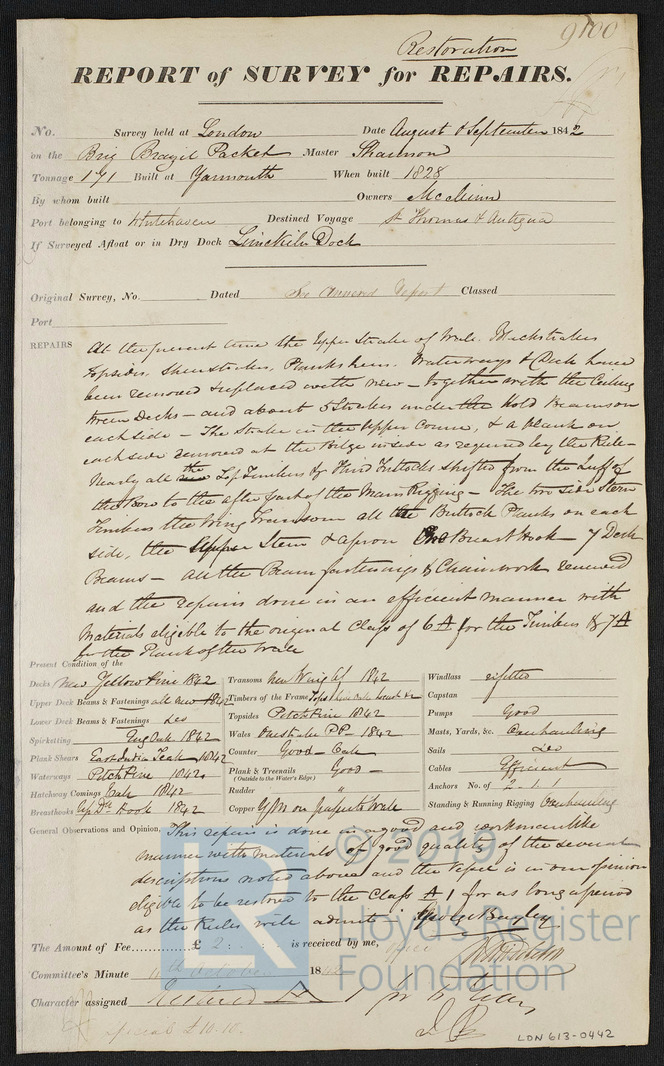 9100
Restoration
REPORT of SURVEY for REPAIRS.
No. Survey held at London Date August & September 1842
on the Brig Brazil Packet Master Shannon
Tonnage 171 Built at Yarmouth When built 1828
By whom built Owners McMinn
Port belonging to Whitehaven Destined Voyage St Thomas & Antigua
If Surveyed Afloat or in Dry Dock Limekiln Dock
Original Survey, No. Dated See Annexed Report Classed
Port
REPAIRS At the present time the Upper Strake of Wale. Blackstrakes
Topsides, Sheerstrakes, Planksheers. Waterways & Deck have
been removed & replaced with new – together with the Ceiling
tween Decks – and about 5 Strakes under the Hold Beams on
each side – The Strake in the Upper Course, & a plank on
each side removed at the Bilge inside as required by the Rule –
Nearly all the Top Timbers & Third Futtocks shifted from the Luff of
the Bow to the after part of the Main Rigging – The two side Stern
Timbers the Wing Transom all the Buttock Planks on each
side, the Upper Stem & Apron One Breast Hook – 7 Deck
Beams – all the Beam fastenings & Chainwork renewed
and the repairs done in an efficient manner with
Materials eligible to the original Class of 6 A for the Timbers & 7 A
for the Plank of the Wale
Present Condition of the
Decks New Yellow Pine 1842 Transoms New Wing 1842 Windlass refitted
Upper Deck Beams & Fastenings all new 1842 Timbers of the Frame Tops Capstan
Lower Deck Beams & Fastenings Do Topsides Pitch Pine 1842 Pumps Good
Spirketting Eng Oak 1842 Wales One strake PP – 1842 Masts, Yards, &c. Overhauling
Plank Shears East India Teak 1842 Counter Good – Oak Sails Do
Waterways Pitch Pine 1842 Plank & Treenails Good – Cables Efficient
(Outside to the Water's Edge)
Hatchway Comings Oak 1842 Rudder " Anchors No. of 2 . 1 . 1
Breasthooks Up Dk Hook 1842 Copper YM on paper to Wale Standing & Running Rigging Overhauling
General Observations and Opinion, This repair is done in a good and workmanlike
manner with materials of good quality of the several
descriptions noted above and the Vessel is in our opinion
eligible to be restored to the Class A 1 for as long a period
as the Rules will admit. George Bayley
The Amount of Fee............ £ 2 : is received by me, office
Committee's Minute 4th October 1842
Character assigned Restored A 1 for 4 Years
special £10.10.
LDN 613-0442
© 2019
LR
Lloyd's Register
Foundation